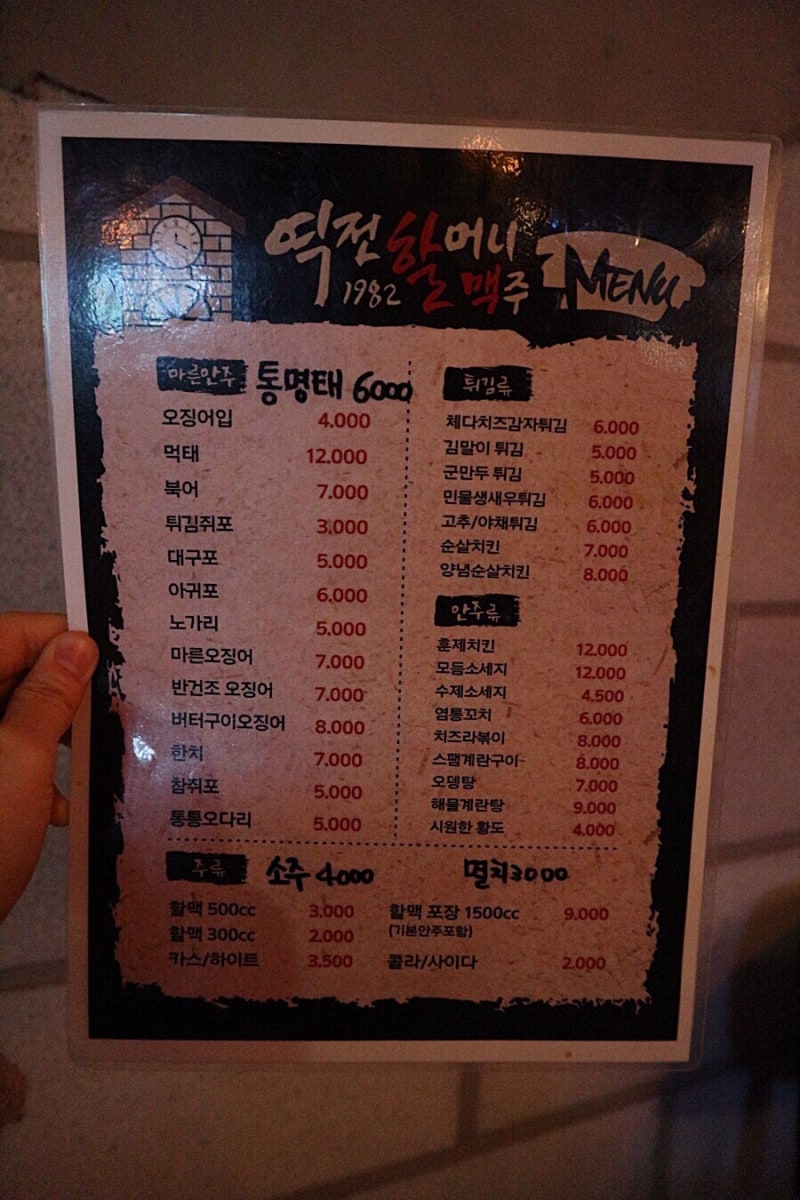 역전할머니
1982 맥주
MENU
마른안주 통명태 6000
오징어입 4.000
먹태 12.000
북어 7.000
튀김쥐포 3.000
대구포 5.000
아귀포 6.000
노가리 5.000
마른오징어 7.000
반건조 오징어 7.000
버터구이오징어 8.000
한치 7.000
참쥐포 5.000
통통오다리 5.000
튀김류
체다치즈감자튀김 6.000
김말이 튀김 5.000
군만두 튀김 5.000
민물생새우튀김 6.000
고추/야채튀김 6.000
순살치킨 7.000
양념순살치킨 8.000
안주류
훈제치킨 12.000
모듬소세지 12.000
수제소세지 4,500
염통꼬치 6.000
치즈라볶이 8.000
스팸계란구이 8.000
오뎅탕 7.000
해물계란탕 9.000
시원한 황도 4.000
주류 소주 4000 멸치3000
할맥 500cc 3.000
할맥 300cc 2.000
카스/하이트 3.500
할맥 포장 1500cc 9.000
(기본안주포함)
콜라/사이다 2.000